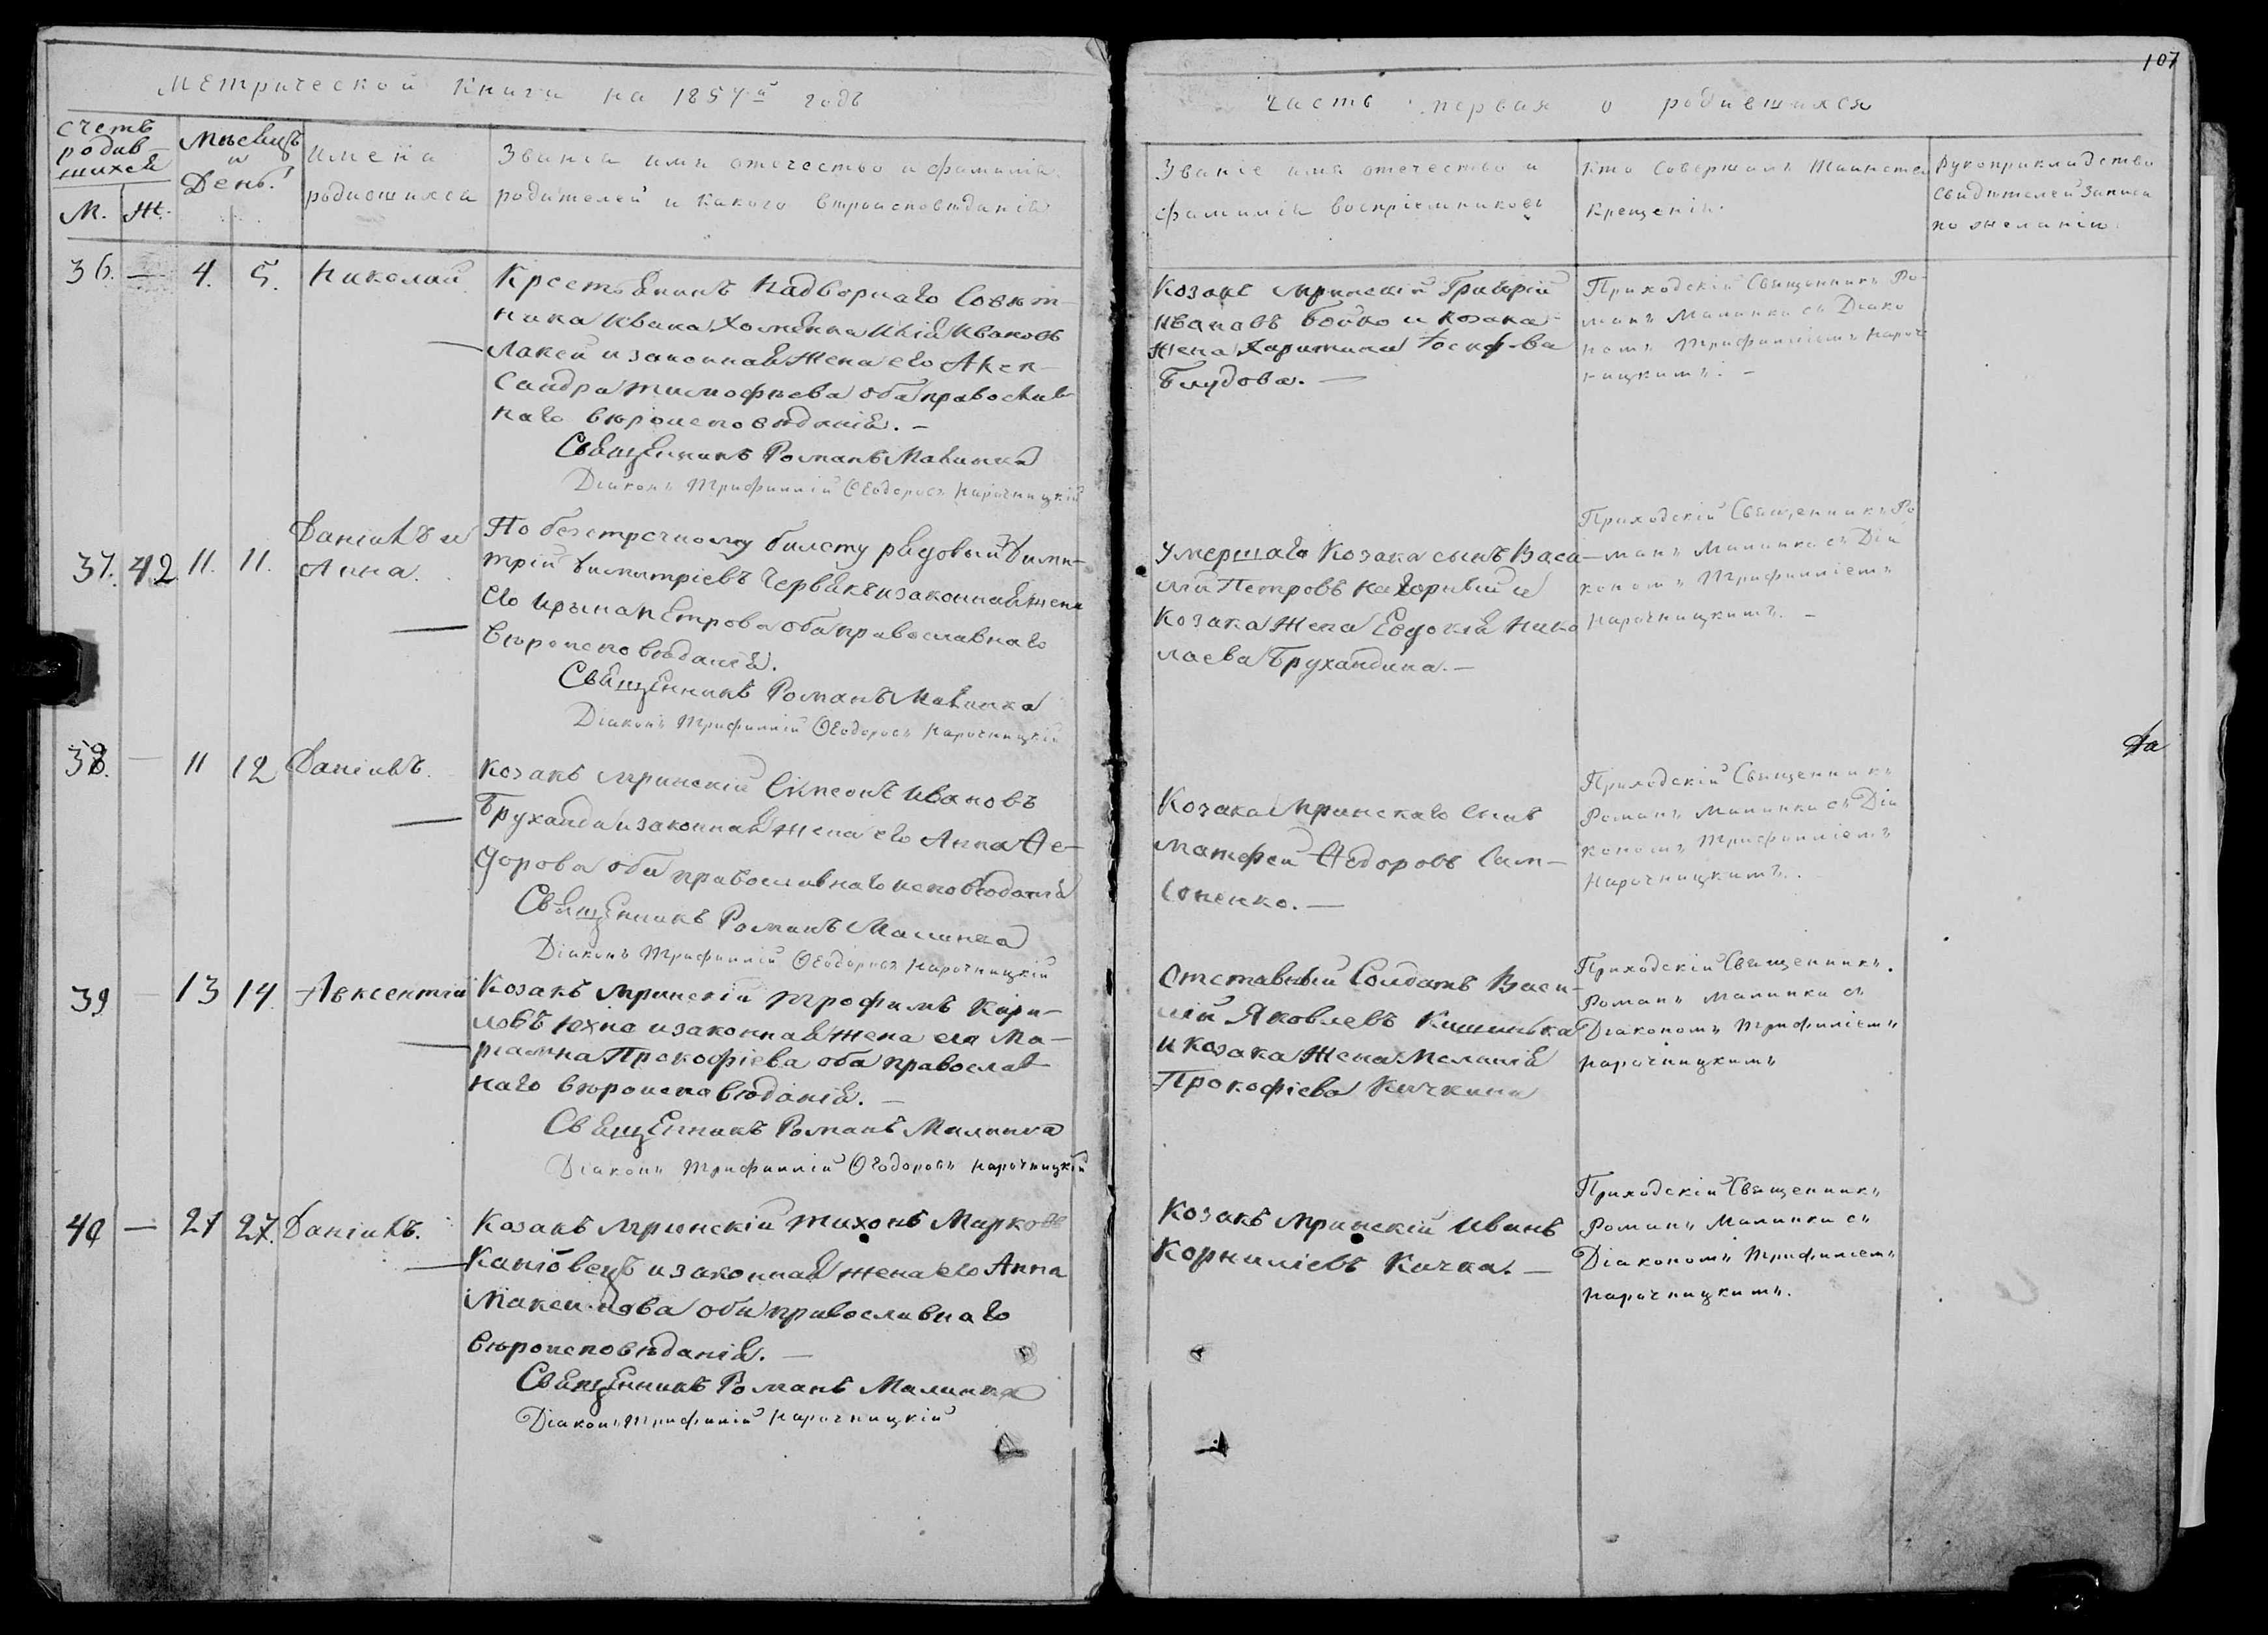 107
Метрической Книги на 1857й годъ
Часть первая о родившихся
Счетъ
родив
шихся
М. Ж.
Мѣсяцъ
и
День.
Имена
родившихся
Званіе имя отечество и фамилія
родителей и какого вѣроисповѣданія
Званіе имя отечество и
фамилія воспріемниковъ
Кто Совершалъ Таинство
Крещенія.
Рукоприкладство
Свидѣтелей записи
по желанію.
36. — 4. 5. Николай
Крестьянинъ Надворнаго Совѣт-
ника Ивана Хоменка Ивановъ
Лакей и законная Жена его Алек-
Сандра Тимофѣева оба православ-
наго вѣроисповѣданія. —
Священникъ Романъ Малинка
Діаконъ Трифиллій Ѳеодоровъ Нарочницкій
Козакъ Мринскій Григорій
Ивановъ Бойко и козака
Жена Харитина Іосифова
Блудова. —
Приходскій Священникъ Ро-
манъ Малинка съ Діако
номъ Трифилліемъ Нароч
ницкимъ. —
37. 42 11. 11. Даніилъ и
Анна.
По безсрочному билету рядовый Дими-
трій Димитріевъ Червякъ и законная жена
его Ирина Петрова оба православнаго
вѣроисповѣданія.
Священникъ Романъ Малинка
Діаконъ Трифиллій Ѳеодоровъ Нарочницкій
Умершаго Козака сынъ Васи-
лій Петровъ и
Козака Жена Евдокія Нико
лаева Брухандина. —
Приходскій Священникъ Ро
манъ Малинка съ Діа
кономъ Трифилліемъ
Нарочницкимъ. —
38. — 11 12 Даніилъ.
Козакъ Мринскій Симеонъ Ивановъ
Бруханда и законная жена его Анна Ѳе-
дорова оба православнаго исповѣданія
Священникъ Романъ Малинка
Діаконъ Трифиллій Ѳеодоровъ Нарочницкій
Козака Мринскаго Сынъ
Матфей Ѳедоровъ Сам-
соненко. —
Приходскій Священникъ
Романъ Малинка съ Діа
кономъ Трифилліемъ
Нарочницкимъ.
39 — 13 14. Авксентій
Козакъ Мринскій Трофимъ Кири-
ловъ Юхно и законная жена его Ма-
ріамна Прокофіева оба православ-
наго вѣроисповѣданія. —
Священникъ Романъ Малинка
Діаконъ Трифиллій Ѳеодоровъ Нарочницкій
Отставный Солдатъ Васи-
лій Яковлевъ Кишинька
и козака Жена Меланія
Прокофіева Кичкина
Приходскій Священникъ.
Романъ Малинка съ
Діакономъ Трифилліемъ
Нарочницкимъ
40 — 27 27. Даніилъ.
Козакъ Мринскій Тихонъ Марковъ
и законная Жена его Анна
Максимова оба православнаго
вѣроисповѣданія. —
Священникъ Романъ Малинка
Діаконъ Трифилій Нарочницкій
Козакъ Мринскій Иванъ
Корниліевъ Кичка. —
Приходскій Священникъ
Романъ Малинка съ
Діакономъ Трифиліемъ
Нарочницкимъ.